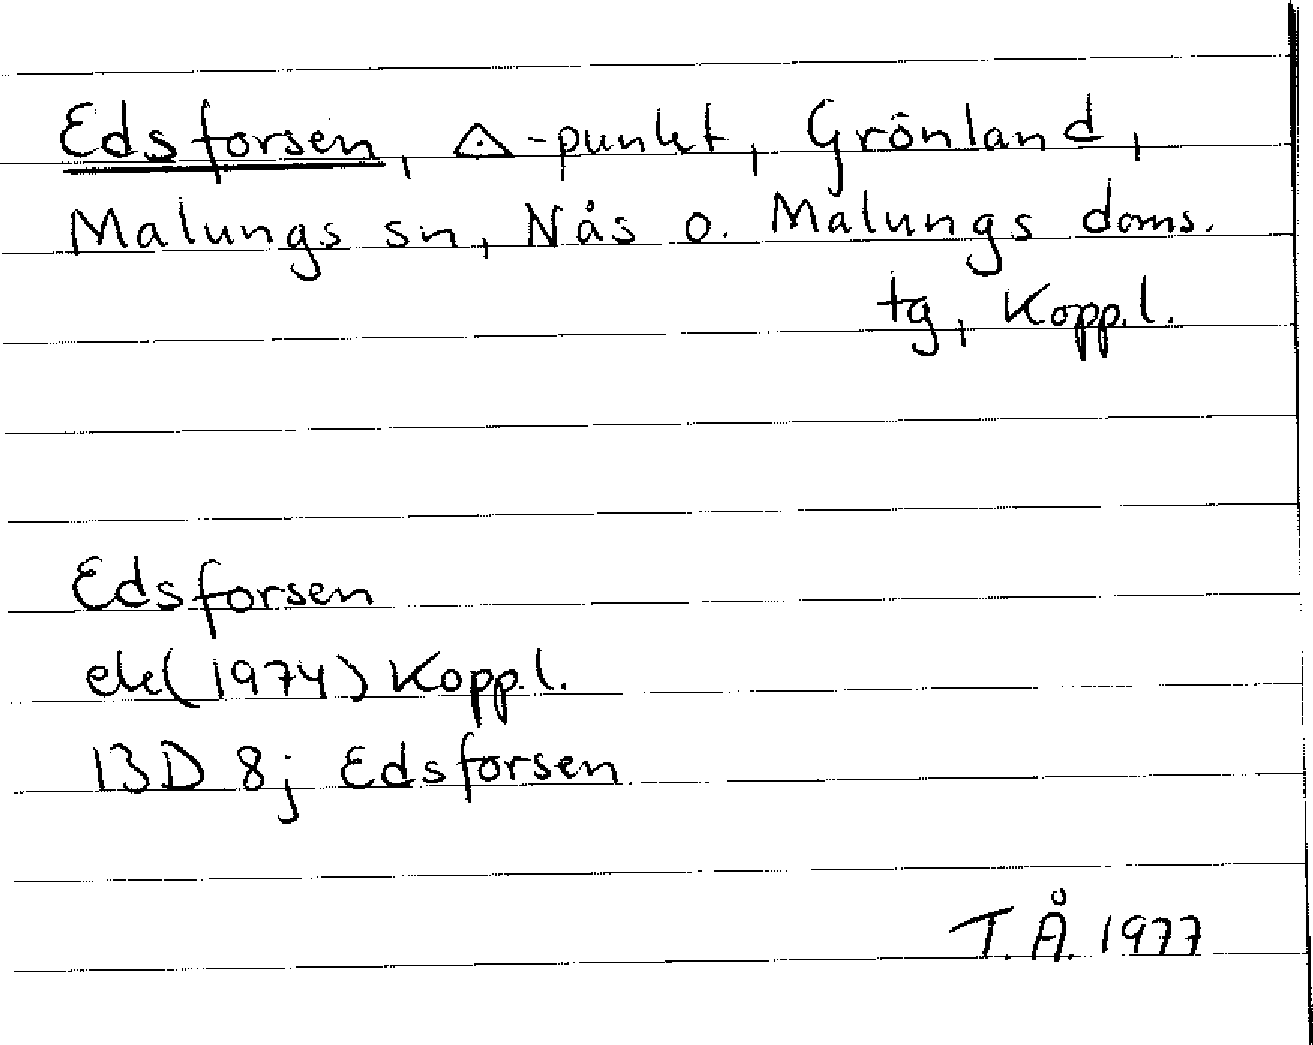 Edsforsen, △-punkt, Grönland,
Malungs sn, Nås o. Malungs doms.
tg, Kopp.l.
Edsforsen
ek(1974) Kopp.l.
13D 8j Edsforsen
T.Å. 1977